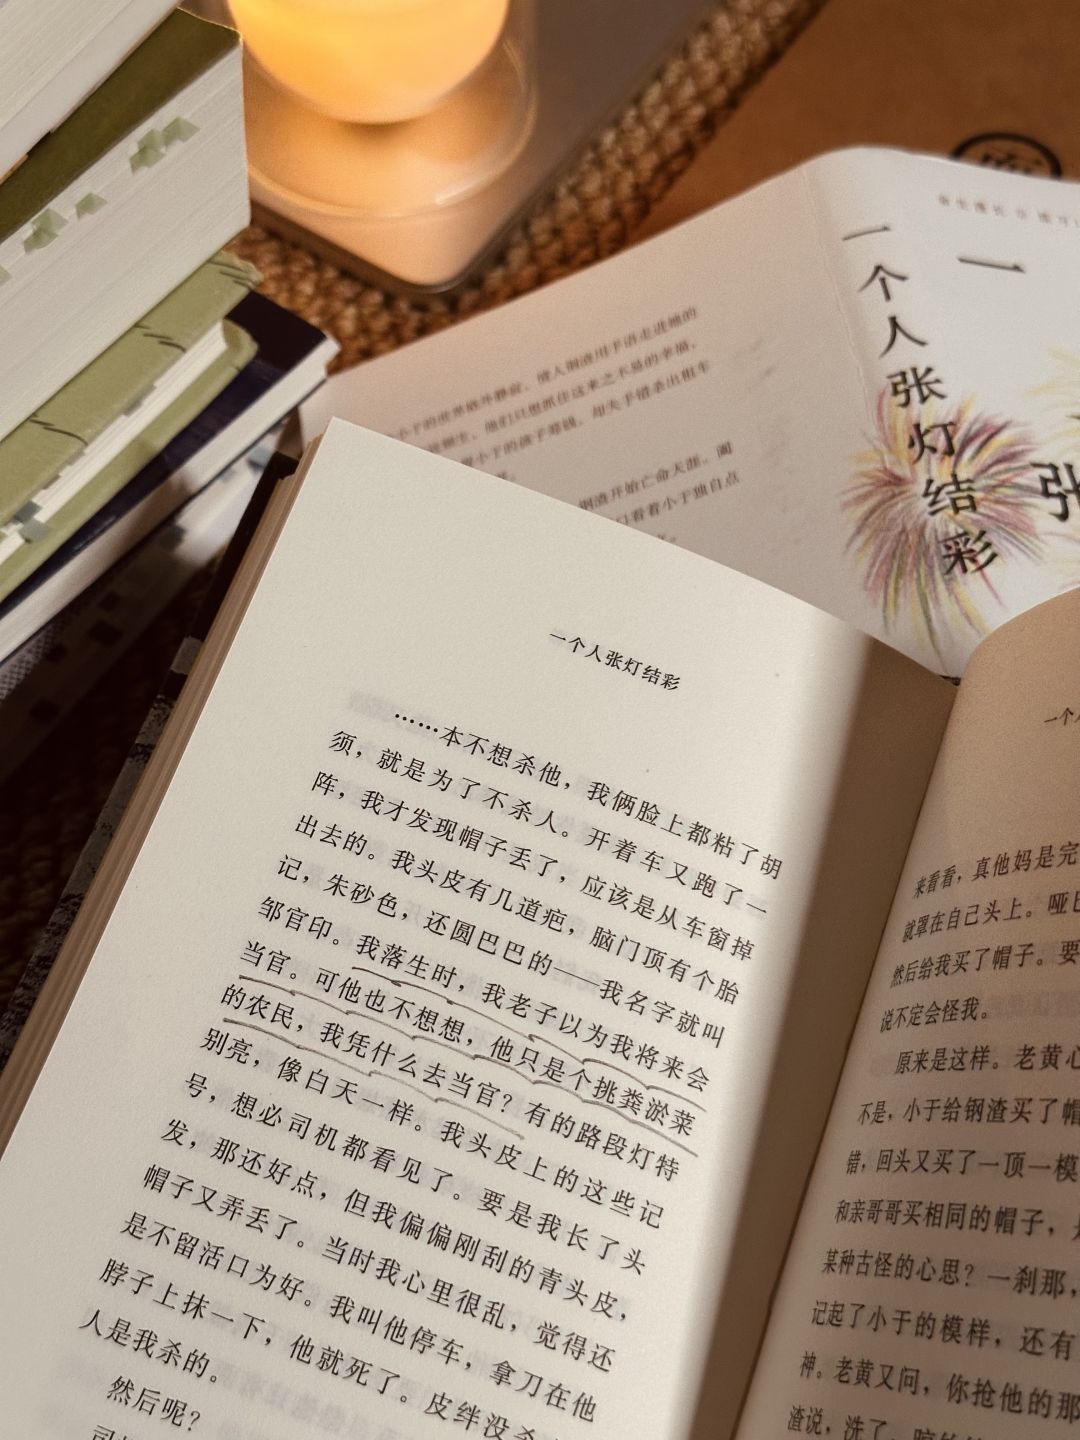 一
一个人张灯结彩
张
小于的世界格外静寂，情人钢渣用手语走进她的
他们只想抓住这来之不易的幸福，
小于的孩子筹钱，却失手错杀出租车
钢渣开始亡命天涯，而
口看着小于独自点
一个人张灯结彩
……本不想杀他，我俩脸上都粘了胡
须，就是为了不杀人。开着车又跑了一
阵，我才发现帽子丢了，应该是从车窗掉
出去的。我头皮有几道疤，脑门顶有个胎
记，朱砂色，还圆巴巴的——我名字就叫
邹官印。我落生时，我老子以为我将来会
当官。可他也不想想，他只是个挑粪淤菜
的农民，我凭什么去当官？有的路段灯特
别亮，像白天一样。我头皮上的这些记
号，想必司机都看见了。要是我长了头
发，那还好点，但我偏偏刚刮的青头皮，
帽子又弄丢了。当时我心里很乱，觉得还
是不留活口为好。我叫他停车，拿刀在他
脖子上抹一下，他就死了。皮绊没杀
人是我杀的。
然后呢？
一个
来看看，真他妈是完
就罩在自己头上。哑巴
然后给我买了帽子。要
说不定会怪我。
原来是这样。老黄心
不是，小于给钢渣买了帽
错，回头又买了一顶一模
和亲哥哥买相同的帽子，
某种古怪的心思？一刹那，
记起了小于的模样，还有
神。老黄又问，你抢他的那
渣说，洗了